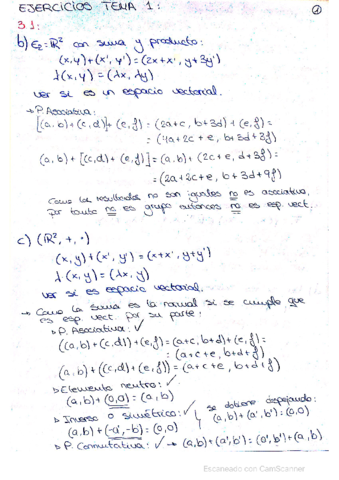 EJERCICIOS TEMA 1:
1
31:
b) E₂ = ℝ² con suma y producto:
(x,y)+(x',y') = (2x+x', y+3y')
λ(x,y) = (λx, λy)
ver si es un espacio vectorial.
→ P. Asociativa:
[(a,b)+(c,d)]+(e,f) = (2a+c, b+3d)+(e,f) =
= (4a+2c+e, b+3d+3f)
(a,b)+[(c,d)+(e,f)] = (a,b)+(2c+e, d+3f) =
= (2a+2c+e, b+3d+9f)
Como los resultados no son iguales no es asociativa,
por tanto no es grupo entonces no es esp. vect.
c) (ℝ², +, ·)
(x,y)+(x',y') = (x+x', y+y')
λ(x,y) = (λx, y)
ver si es espacio vectorial.
→ Como la suma es la normal si se cumple que
es esp. vect. por su parte:
→ P. Asociativa: ✓
((a,b)+(c,d))+(e,f) = (a+c, b+d)+(e,f) =
= (a+c+e, b+d+f)
(a,b)+((c,d)+(e,f)) = (a+c+e, b+d+f)
→ Elemento neutro: ✓
(a,b)+(0,0) = (a,b)
→ Inverso o simétrico: ✓ se obtiene despejando:
(a,b)+(-a,-b) = (0,0) (a,b)+(a',b') = (0,0)
→ P. Conmutativa: ✓ → (a,b)+(a',b') = (a',b')+(a,b)
Escaneado con CamScanner